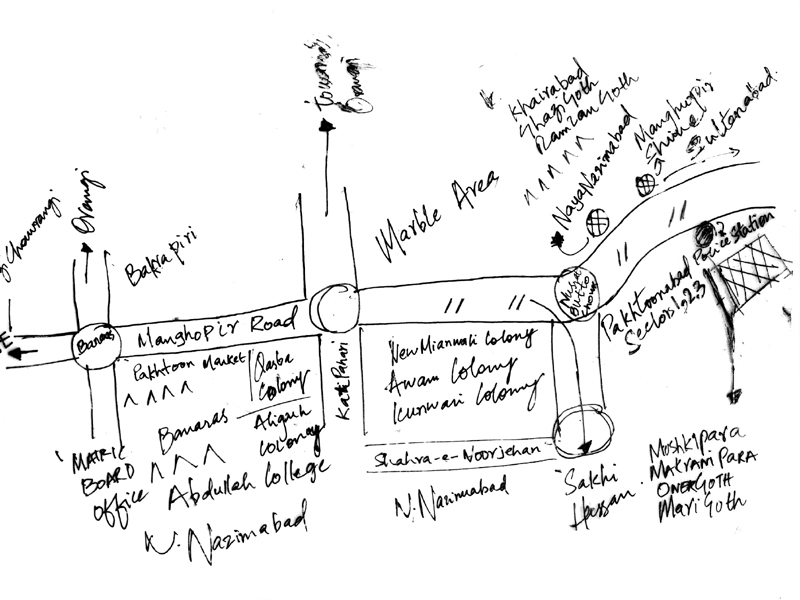 Chowrangi
Orangi
Bakrapiri
Towards
Orangi
Marble Area
Khairabad
Ghazi Goth
Ramzan Goth
Naya Nazimabad
Manghopir
Shrine
Sultanabad
Banaras
Manghopir Road
Pakhtoon Market
Qasba
Colony
Banaras
Aligarh
Colony
Abdullah College
MATRIC
BOARD
Office
N. Nazimabad
Kati Pahari
New Mianwali Colony
Awami Colony
Kunwari Colony
Shahra-e-Noorjehan
N. Nazimabad
Nusrat
Bhutto
Chowk
Pakhtoonabad
Sectors 1,2,3
Police Station
Sakhi
Hassan
Moshkipara
Makrani PARA
OMER GOTH
Mari Goth